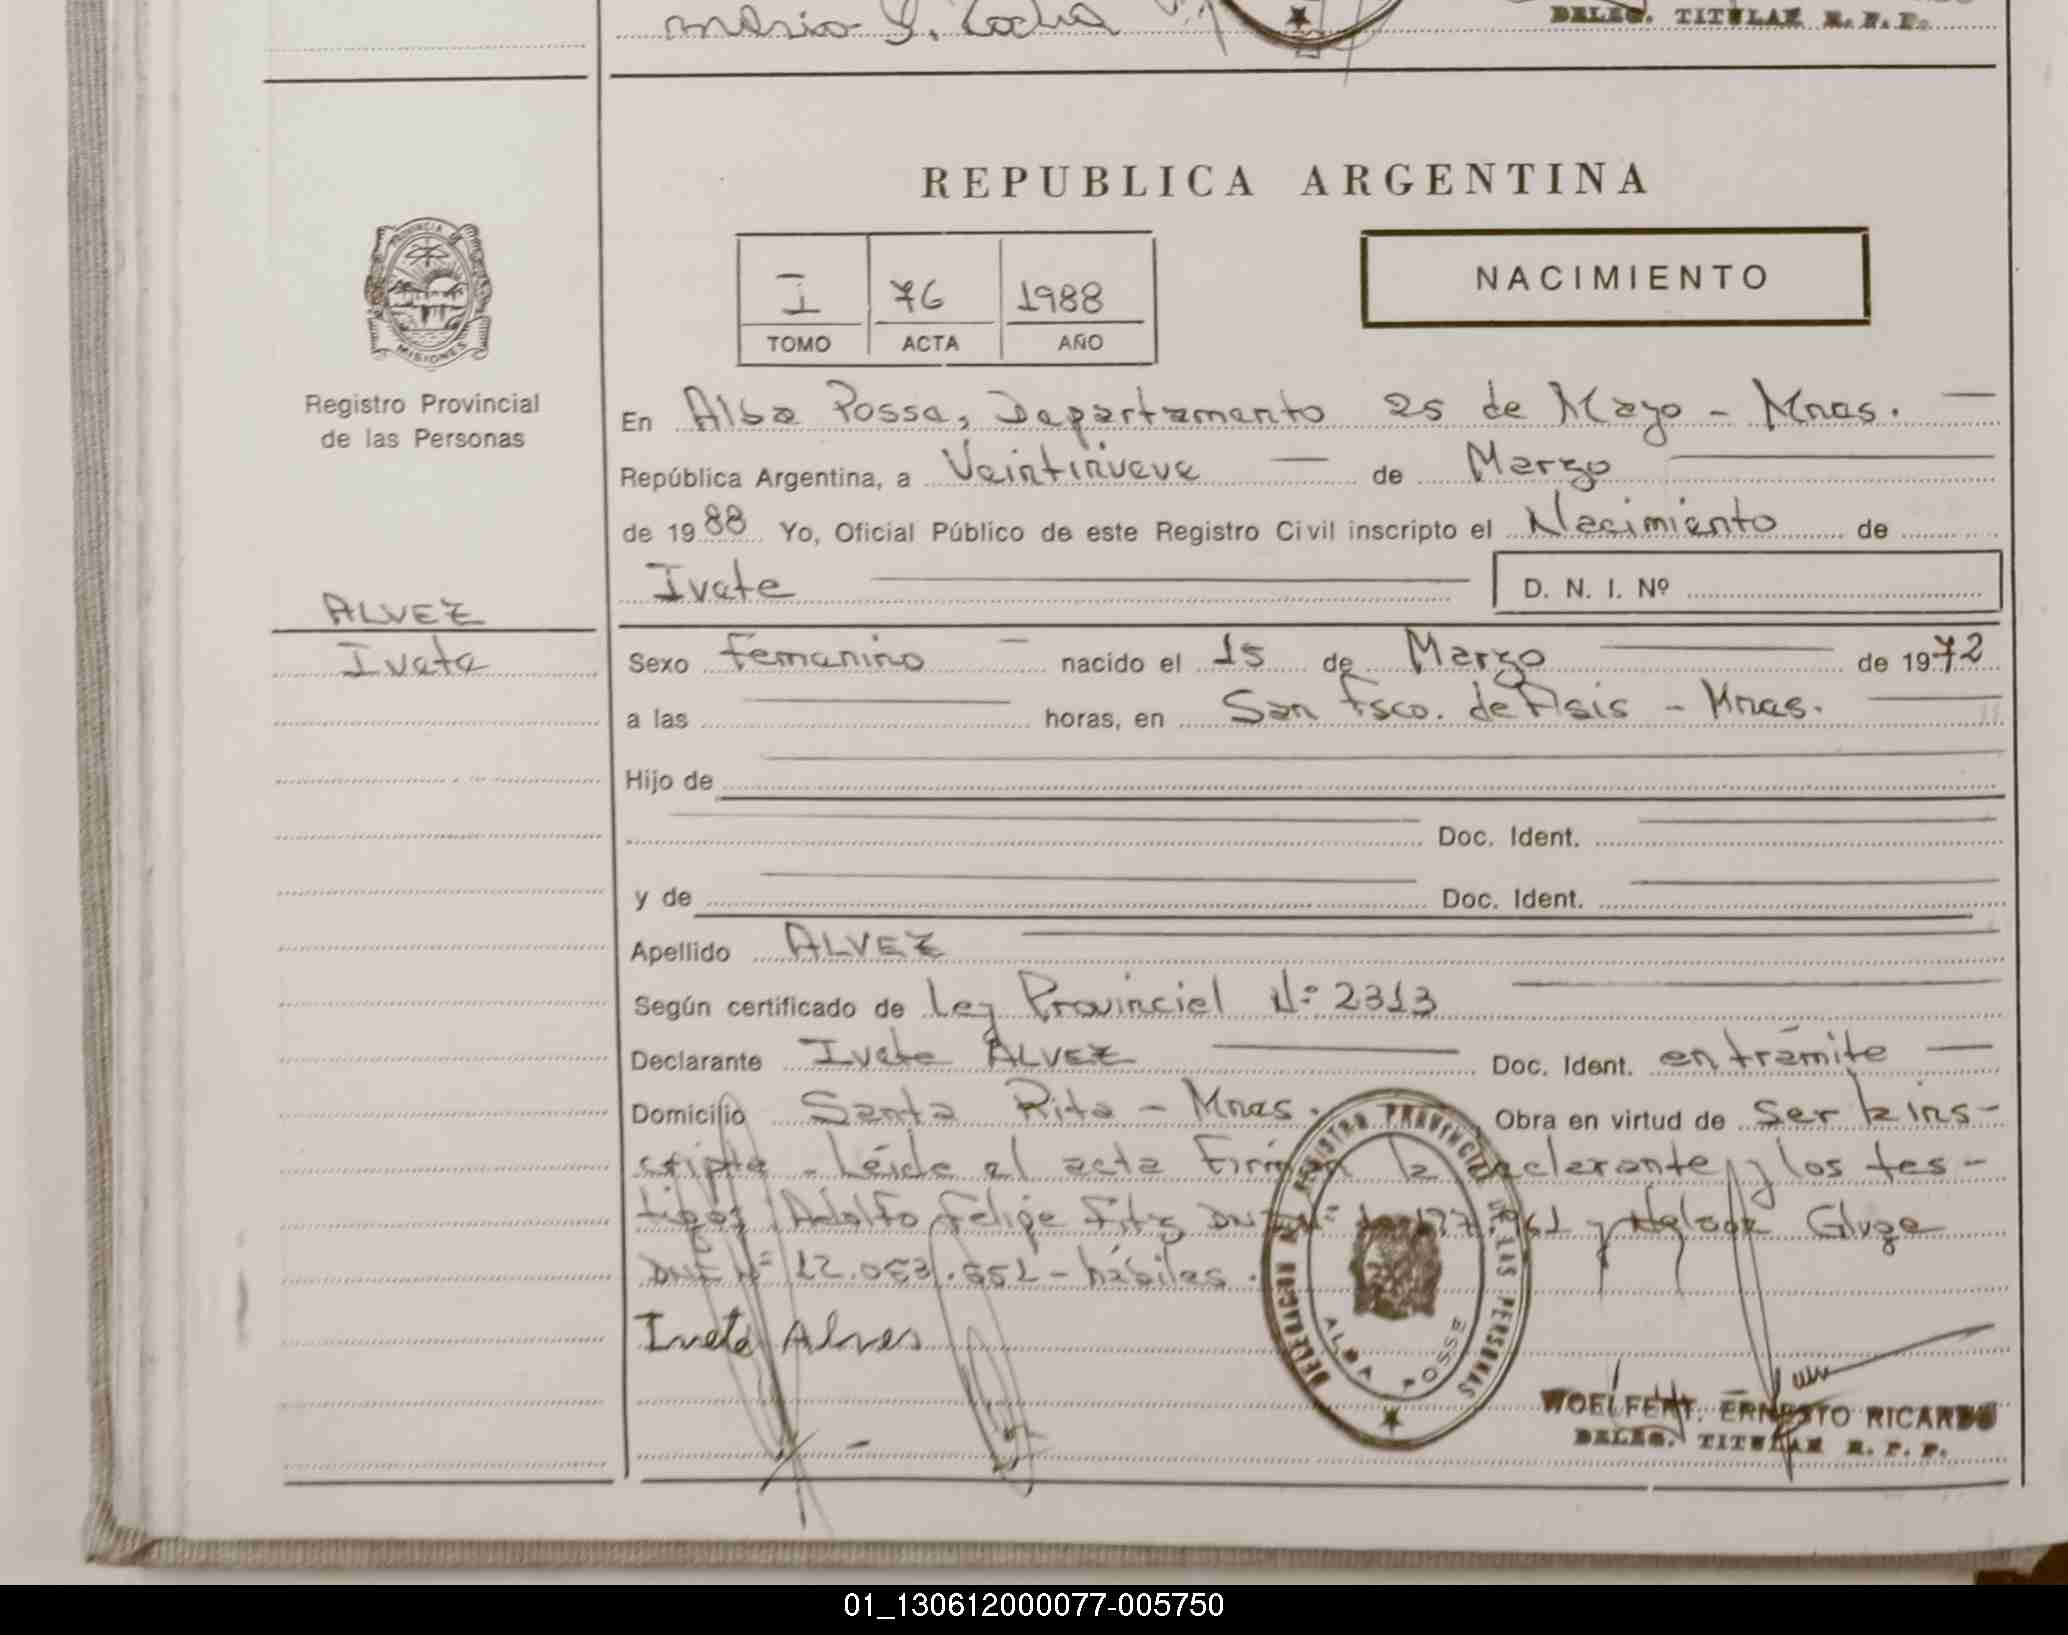 Mario G. Rocha
DELEG. TITULAR R. P. P.
REPUBLICA ARGENTINA
PROVINCIA DE
MISIONES
Registro Provincial
de las Personas
I 76 1988
TOMO ACTA AÑO
NACIMIENTO
En Alba Posse, Departamento 25 de Mayo - Mnas.
República Argentina, a Veintinueve de Marzo
de 1988 Yo, Oficial Público de este Registro Civil inscripto el Nacimiento de
Ivete D. N. I. Nº
ALVEZ
Ivete
Sexo Femenino nacido el 15 de Marzo de 1972
a las horas, en San Fsco. de Asis - Mnas.
Hijo de
Doc. Ident.
y de Doc. Ident.
Apellido ALVEZ
Según certificado de Ley Provincial Nº 2313
Declarante Ivete ALVEZ Doc. Ident. en trámite
Domicilio Santa Rita - Mnas. Obra en virtud de ser la ins-
cripta - Leída el acta Firman la declarante y los tes-
tigos Adolfo Felipe Fitz DNI Nº y Gluge
DNI Nº 12.053.552 - hábiles.
Ivete Alves
DELEGACION REGISTRO PROVINCIAL DE LAS PERSONAS
ALBA POSSE
WOELFERT, ERNESTO RICARDO
DELEG. TITULAR R. P. P.
01_130612000077-005750